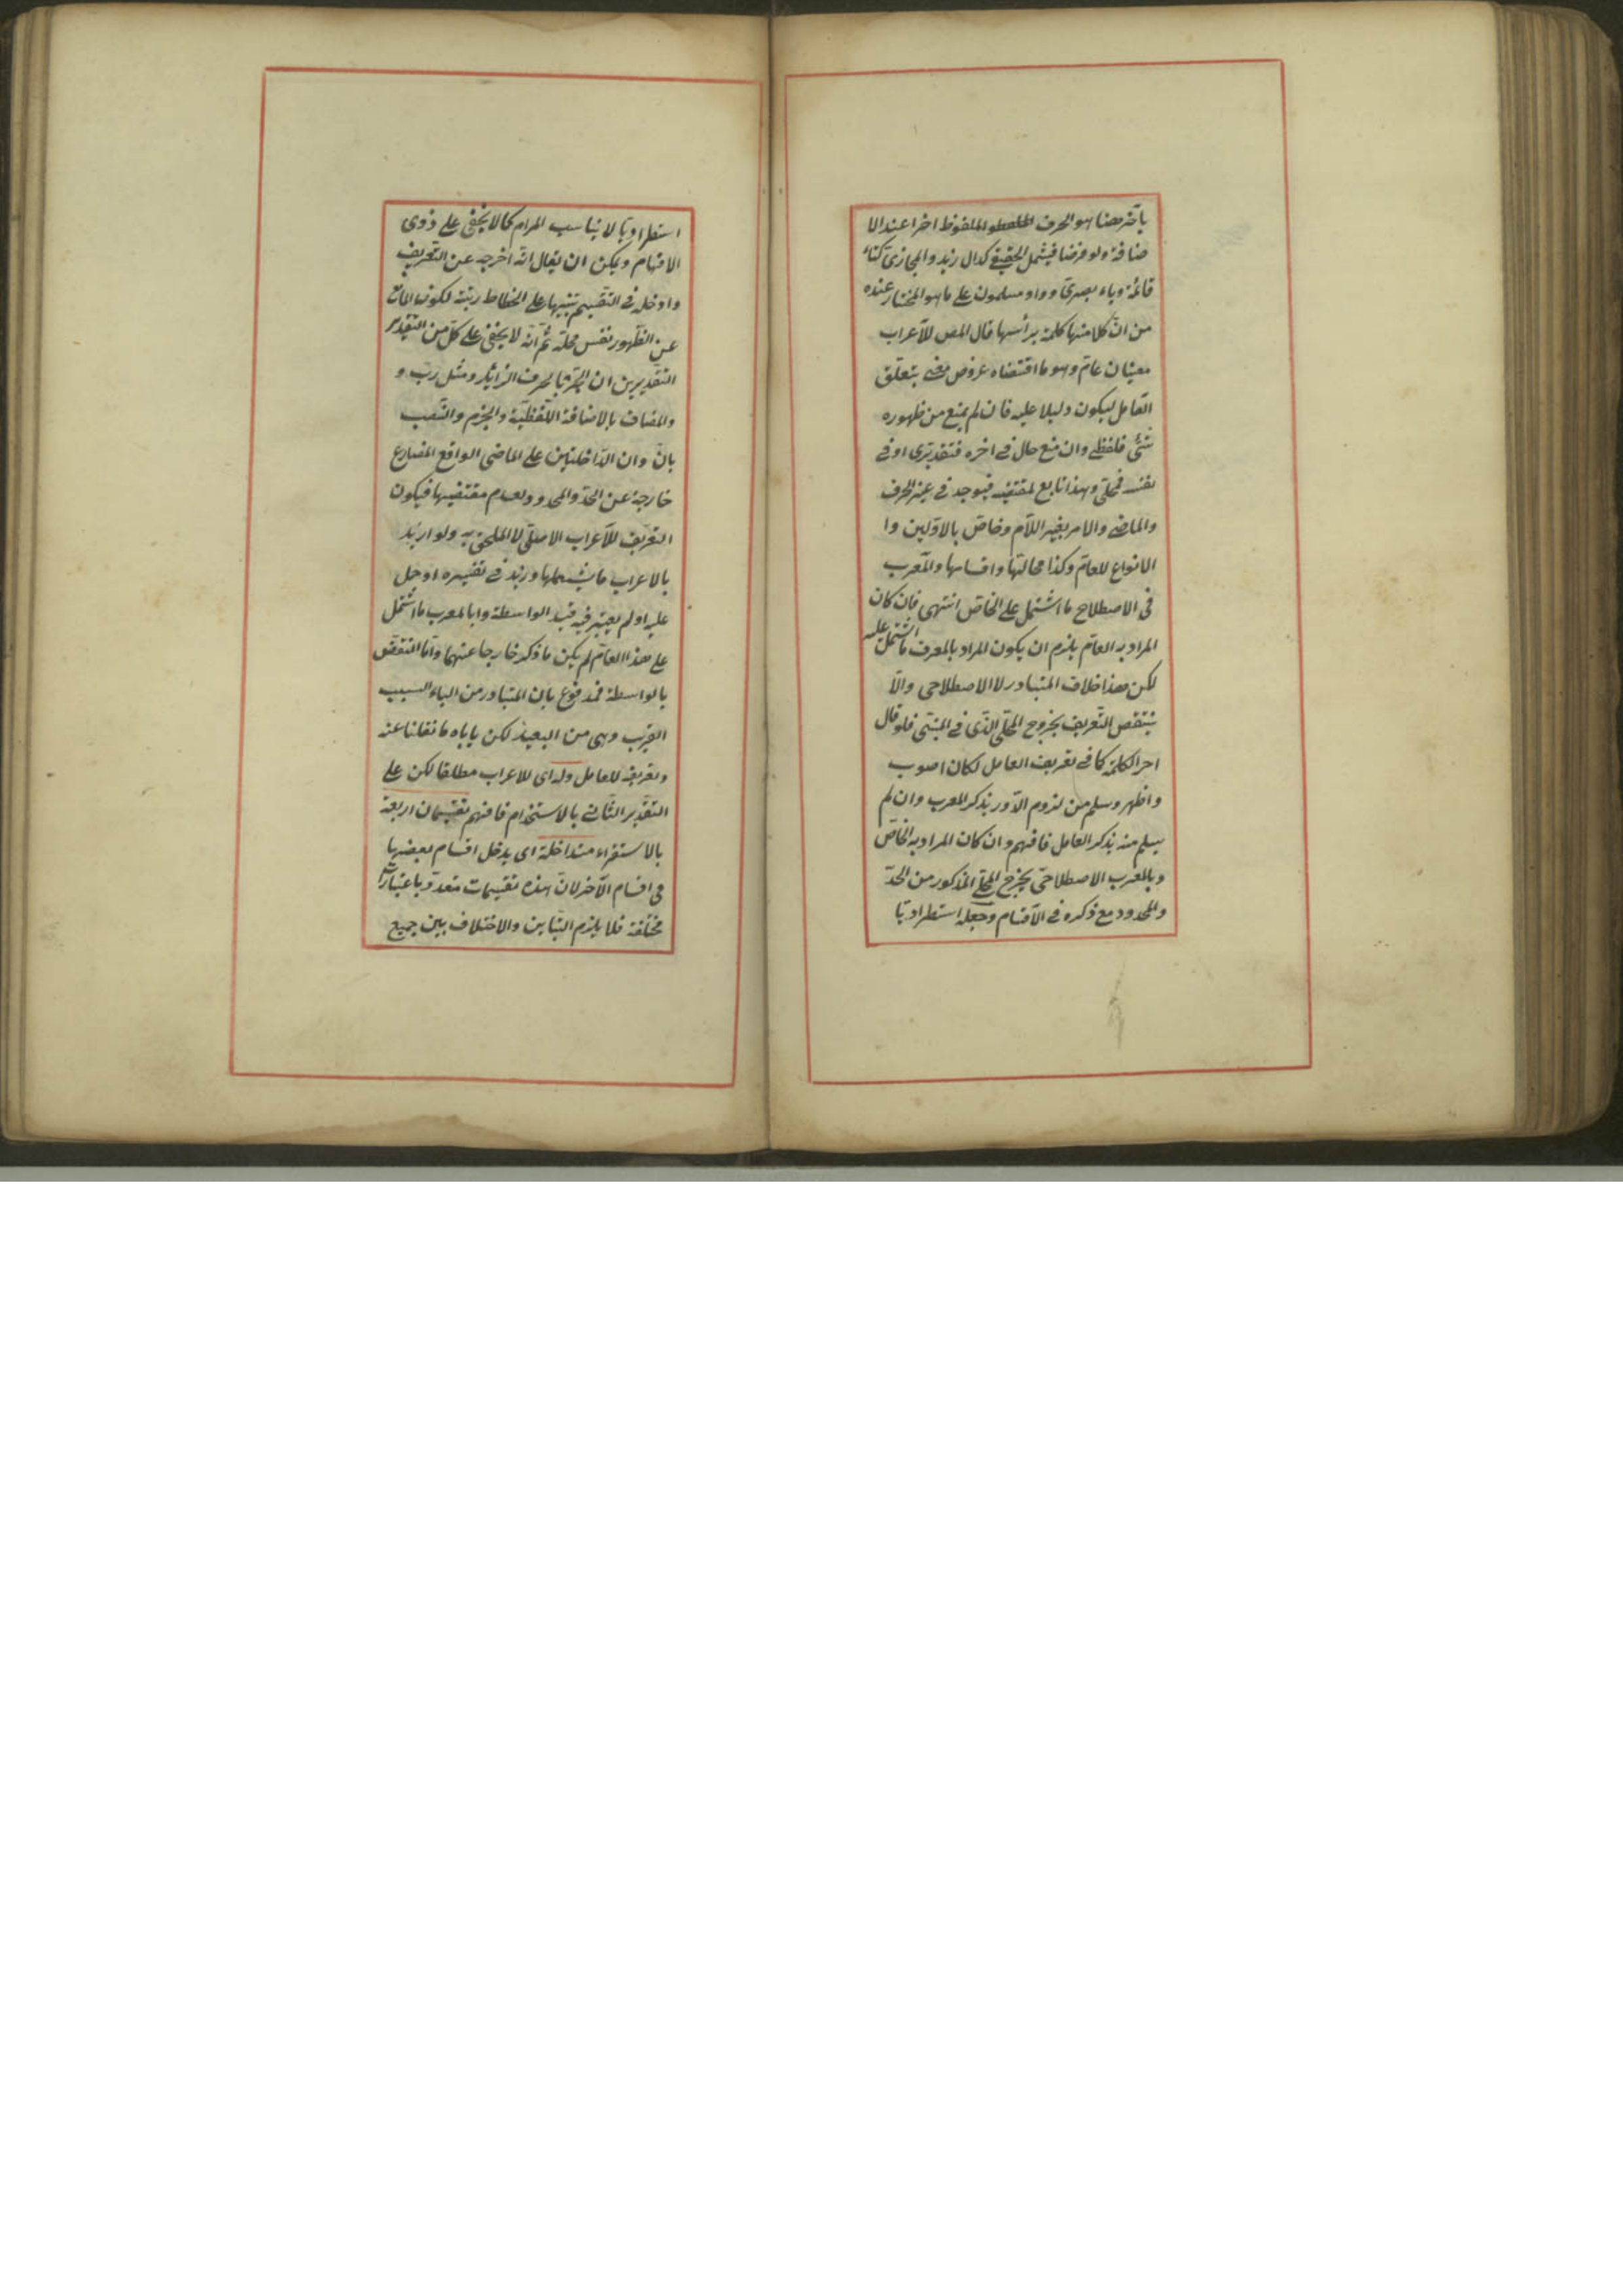 بآخر هنا هو الحرف الملفوظ اخرا عند الا
ضافة ولو فرضا فيشمل الحقيقى كدال زيد والمجازى كتاء
قائمة وياء بصرى وواو مسلمون على ما هو المختار عنده
من ان كلا منها كلمة برأسها قال المص للاعراب
معنيان عام وهو ما اقتضاه عروض معنى يتعلق
العامل ليكون دليلا عليه فان لم يمنع من ظهوره
شئ فلفظى وان منع حال فى اخره فتقديرى او فى
نفسه فمحلى وهذا تابع لمقتضيه فيوجد فى غير الحرف
والماضى والامر بغير اللام وخاص بالاولين وا
الانواع للعام وكذا محالتها واقسامها والمعرب
فى الاصطلاح ما اشتمل على الخاص انتهى فان كان
المراد به العام يلزم ان يكون المراد بالمعرب ما اشتمل عليه
لكن هذا خلاف المتبادر لا الاصطلاحى والا
ينتقص التعريف بخروج المحلى الذى فى المبنى فلو قال
اخر الكلمة كما فى تعريف العامل لكان اصوب
واظهر وسلم من لزوم الدور بذكر المعرب وان لم
يسلم منه بذكر العامل فافهم وان كان المراد به الخاص
وبالمعرب الاصطلاحى يخرج المحلى المذكور من الحد
والمحدود مع ذكره فى الاقسام وجعله استطراديا
استطراديا لا يناسب المرام كما لا يخفى على ذوى
الافهام ويمكن ان يقال انه اخرجه عن التعريف
وادخله فى التقسيم تنبيها على انحطاط رتبته لكون المانع
عن الظهور نفس محله ثم انه لا يخفى على كل من التقدير
التقديرين ان الجر بالحرف الزائد ومثل رب و
والمضاف بالاضافة اللفظية والجزم والنصب
بان وان الداخلتين على الماضى الواقع المضارع
خارجة عن الحد والمحدود لعدم مقتضيها فيكون
التعريف للاعراب الاصلى لا الملحق به ولو اريد
بالاعراب ما يشملها وزيد فى تفسيره او حمل
عليه او لم يعتبر فيه قيد الواسطة وبالمعرب ما اشتمل
على هذا العام لم يكن ما ذكر خارجا عنهما واما النقض
بالواسطة فمدفوع بان المتبادر من الباء السبب
القريب وهى من البعيد لكن ياباه ما نقلنا عنه
وتعريفه للعامل وله اى للاعراب مطلقا لكن على
التقدير الثانى بالاستخدام فافهم تقسيمات اربعة
بالاستقراء متداخلة اى يدخل اقسام بعضها
فى اقسام الاخر لان هذه تقسيمات متعددة باعتبارات
مختلفة فلا يلزم التباين والاختلاف بين جميع